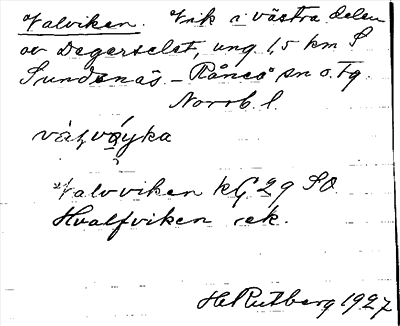 Valviken. Vik i västra delen
av Degerselet, ung 1,5 km S
Sundenäs. – Råneå sn o. Tg.
Norrb. l.
Valvviken kG 29 SO
Hvalfviken ek.
H Rutberg 1927